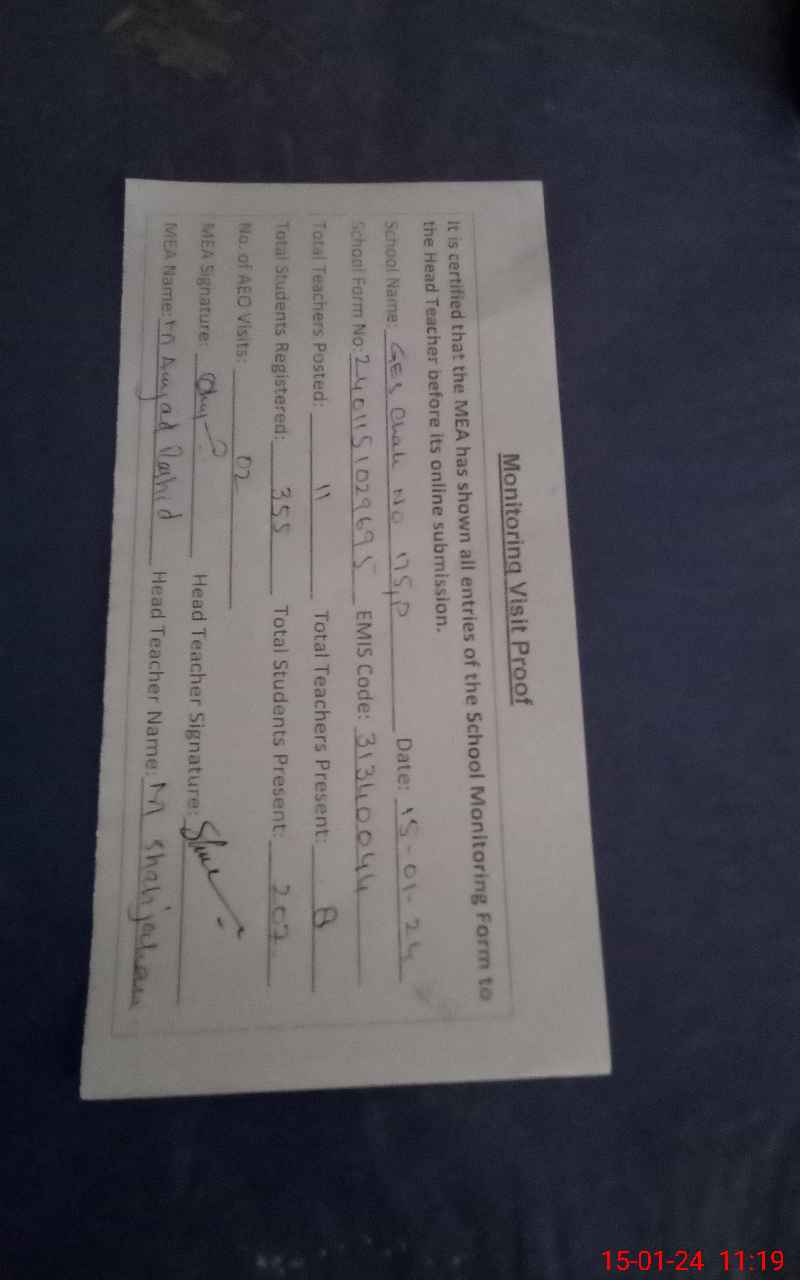 Monitoring Visit Proof
It is certified that the MEA has shown all entries of the School Monitoring Form to
the Head Teacher before its online submission.
School Name: GES Chak No 175,P Date: 15-01-24
School Form No: 2401151029695 EMIS Code: 31340044
Total Teachers Posted: 11 Total Teachers Present: 8
Total Students Registered: 355 Total Students Present: 207
No. of AEO Visits: 02
MEA Signature: Head Teacher Signature:
MEA Name: M Amjad Rashid Head Teacher Name: M Shahjahan
15-01-24 11:19